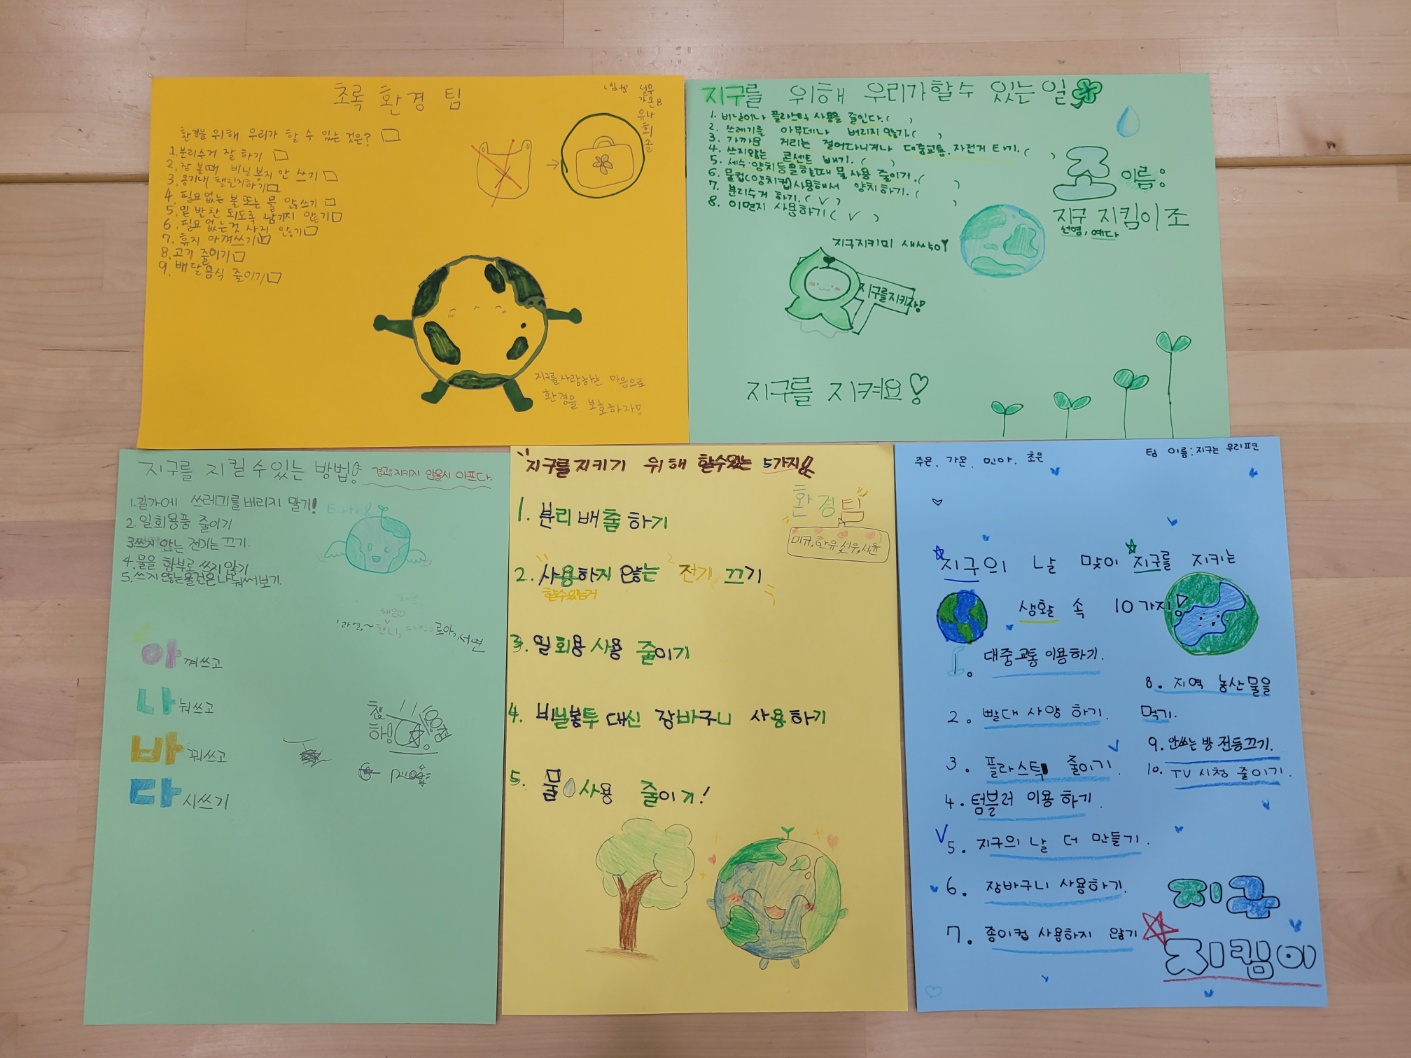 초록 환경 팀
환경을 위해 우리가 할 수 있는 것은?
1. 분리수거 잘 하기
2. 장 볼때 비닐봉지 안 쓰기
3. 용기내 챌린지하기
4. 필요없는 불 또는 물 안쓰기
5. 밑반찬 되도록 남기지 않기
6. 필요없는것 사지 않기
7. 휴지 아껴쓰기
8. 고기 줄이기
9. 배달음식 줄이기
지구를 사랑하는 마음으로
환경을 보호하자!
지구를 위해 우리가할수 있는일
1. 비닐이나 플라스틱 사용을 줄인다. ( )
2. 쓰레기를 아무데나 버리지 않기 ( )
3. 가까운 거리는 걸어다니거나 대중교통, 자전거 타기. ( )
4. 쓰지않는 콘센트 빼기. ( )
5. 세수·양치등을할때 물 사용 줄이기. ( )
6. 물컵(양치컵)사용해서 양치하기. ( )
7. 분리수거 하기. ( √ )
8. 이면지 사용하기 ( √ )
조 이름:
지구 지킴이조
선영, 예다
지구지키미 새싹이!
지구를지키자!
지구를 지켜요!
지구를 지킬 수 있는 방법!
경고: 지키지 않을시 아프다.
1. 길가에 쓰레기를 버리지 말기!
2. 일회용품 줄이기
3. 쓰지 않는 전기는 끄기.
4. 물을 함부로 쓰지 않기
5. 쓰지않는물건은 나눠써보기.
Earth!
로아, 서연
아껴쓰고
나눠쓰고
바꿔쓰고
다시쓰기
지구를지키기 위해 할수있는 5가지!
환경팀
1. 분리 배출 하기
2. 사용하지 않는 전기 끄기
할수있는거
3. 일회용 사용 줄이기
4. 비닐봉투 대신 장바구니 사용하기
5. 물 사용 줄이기!
주은. 가온. 민아. 초은
팀 이름: 지구는 우리꺼
지구의 날 맞이 지구를 지키는
생활 속 10가지!
1. 대중교통 이용하기.
2. 빨대 사양 하기.
3. 플라스틱 줄이기
4. 텀블러 이용하기.
5. 지구의 날 더 만들기.
6. 장바구니 사용하기.
7. 종이컵 사용하지 않기
8. 지역 농산물을
먹기.
9. 안쓰는 방 전등끄기.
10. TV 시청 줄이기.
지구
지킴이